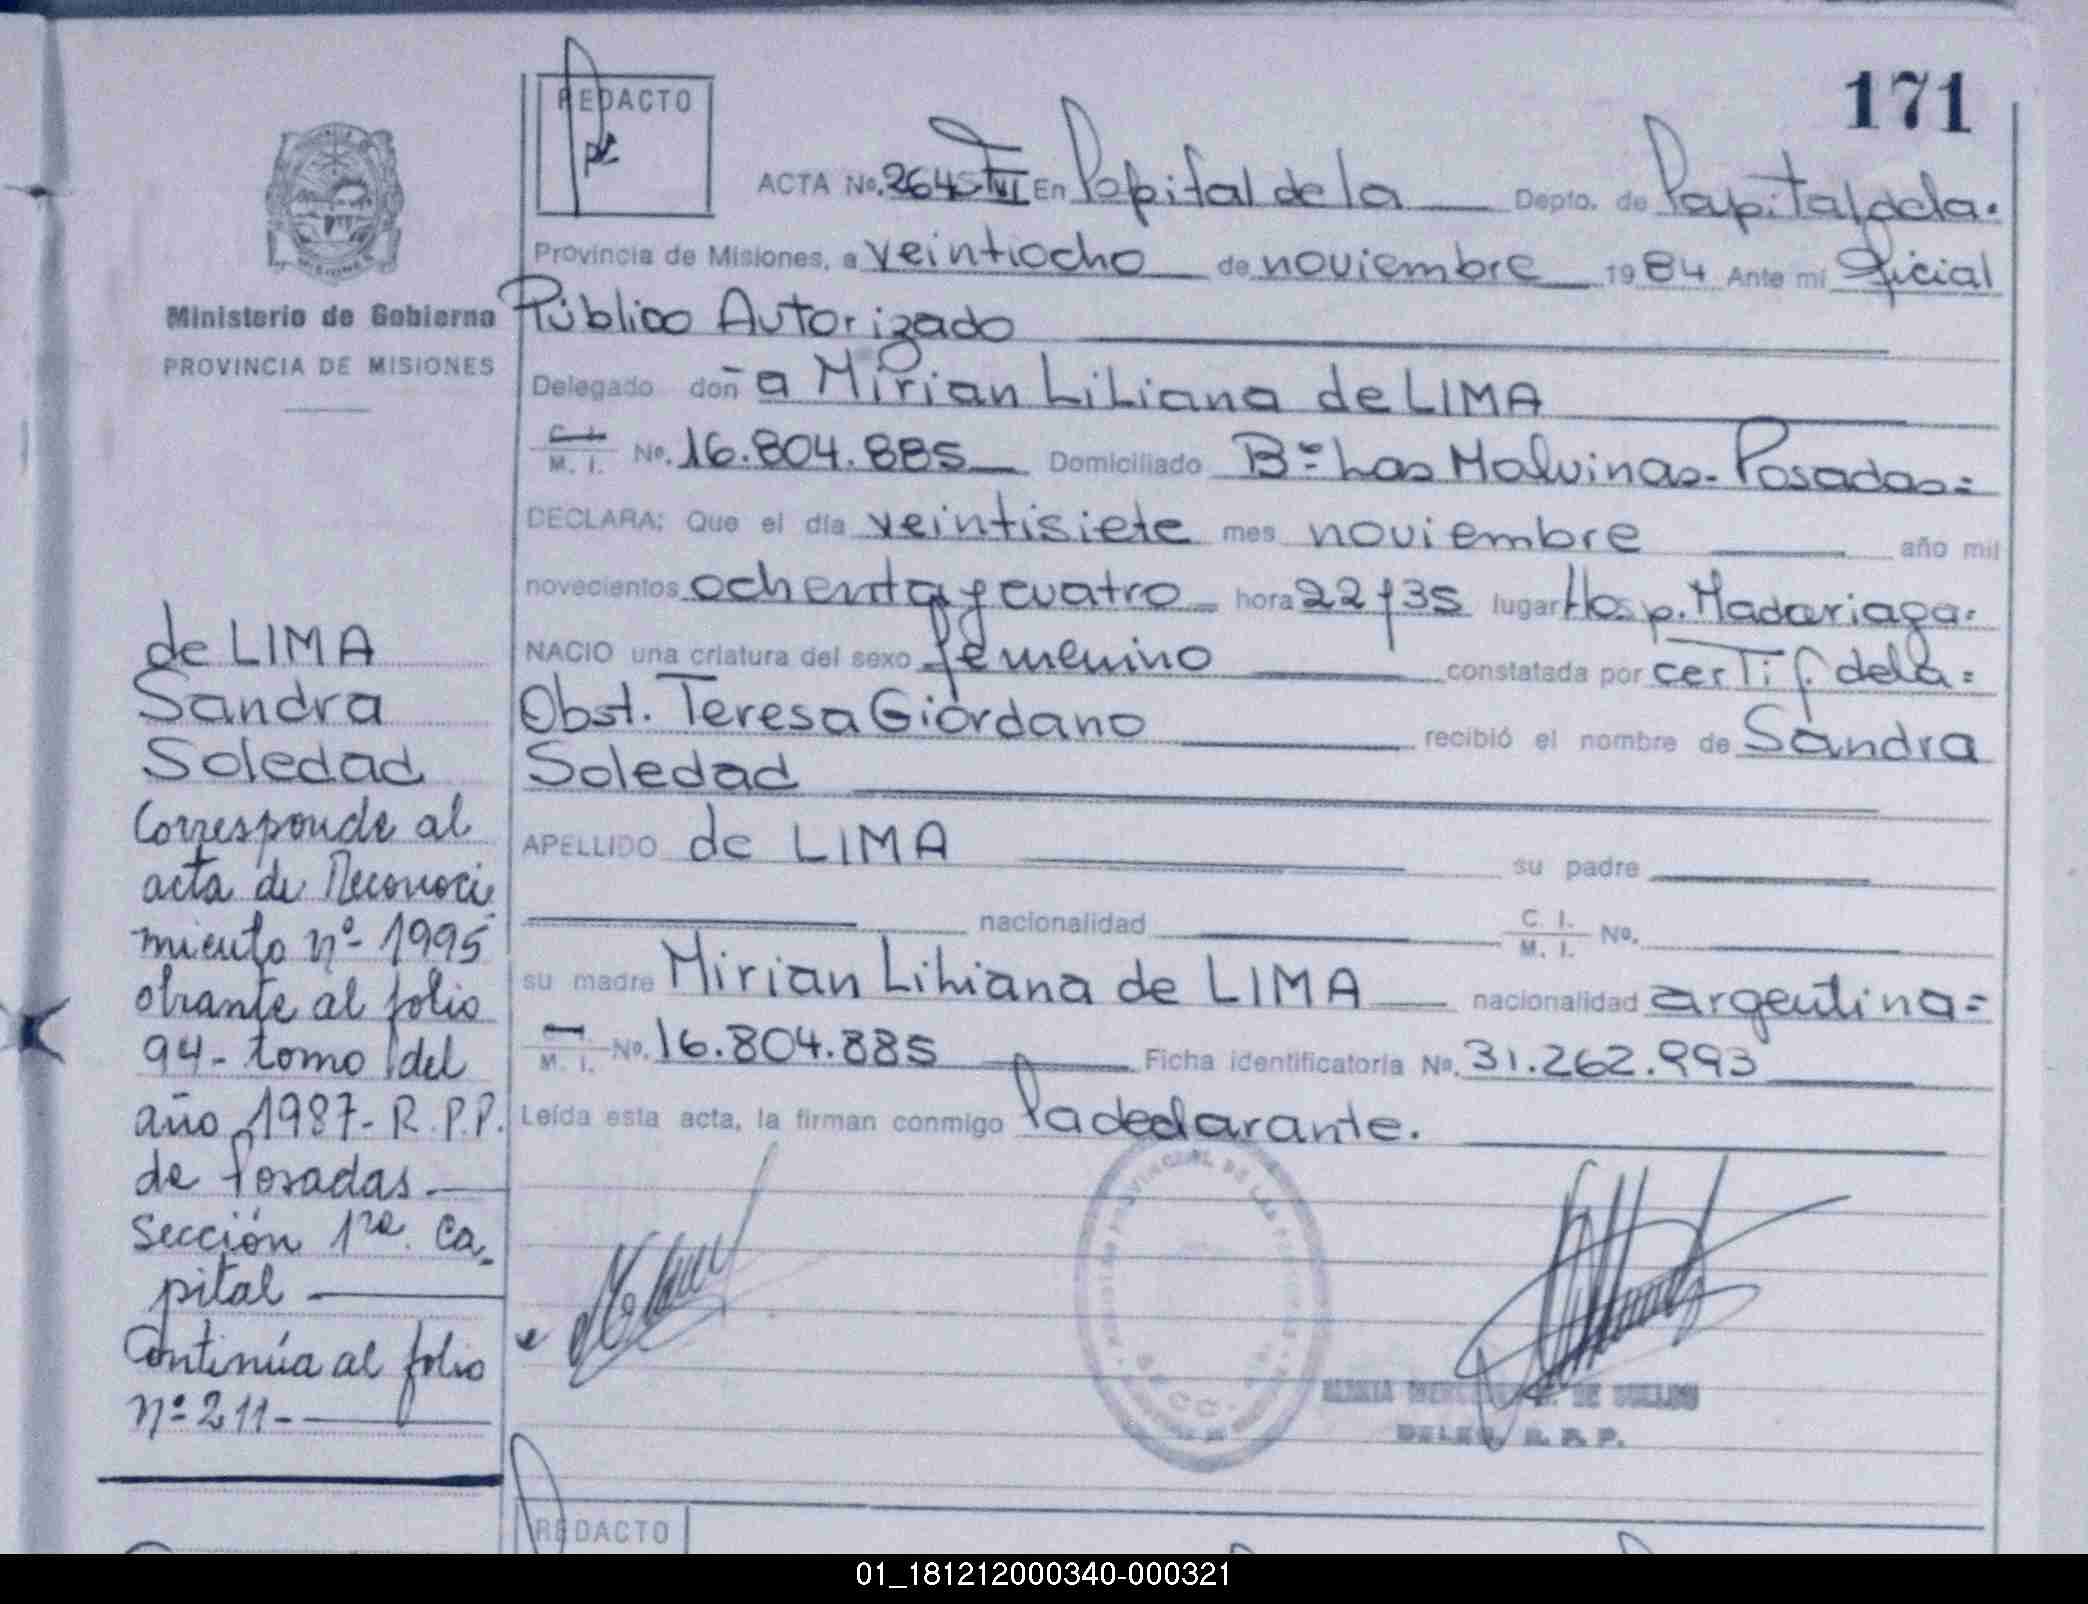 171
REDACTO
ACTA No. 2645 TVI En Capital de la Depto. de Capital dela.
Provincia de Misiones, a veintiocho de noviembre 1984 Ante mi Oficial
Público Autorizado
Delegado doña Mirian Liliana de LIMA
C. I.
M. I. No. 16.804.885 Domiciliado Bº Las Malvinas - Posadas=
DECLARA: Que el día veintisiete mes noviembre año mil
novecientos ochenta y cuatro hora 22 y 35 lugar Hosp. Madariaga.
NACIO una criatura del sexo femenino constatada por certif. dela=
Obst. Teresa Giordano recibió el nombre de Sandra
Soledad
APELLIDO de LIMA su padre
nacionalidad C. I.
M. I. No.
su madre Mirian Liliana de LIMA nacionalidad argentina=
M. I. No. 16.804.885 Ficha identificatoria No. 31.262.993
Leída esta acta, la firman conmigo la declarante.
DE
DELEG. R. P. P.
REDACTO
MISIONES
Ministerio de Gobierno
PROVINCIA DE MISIONES
de LIMA
Sandra
Soledad
Corresponde al
acta de Reconoci
miento nº 1995
obrante al folio
94- tomo I del
año 1987- R.P.P.
de Posadas
Sección 1ra. Ca-
pital
Continúa al folio
nº 211-
01_181212000340-000321